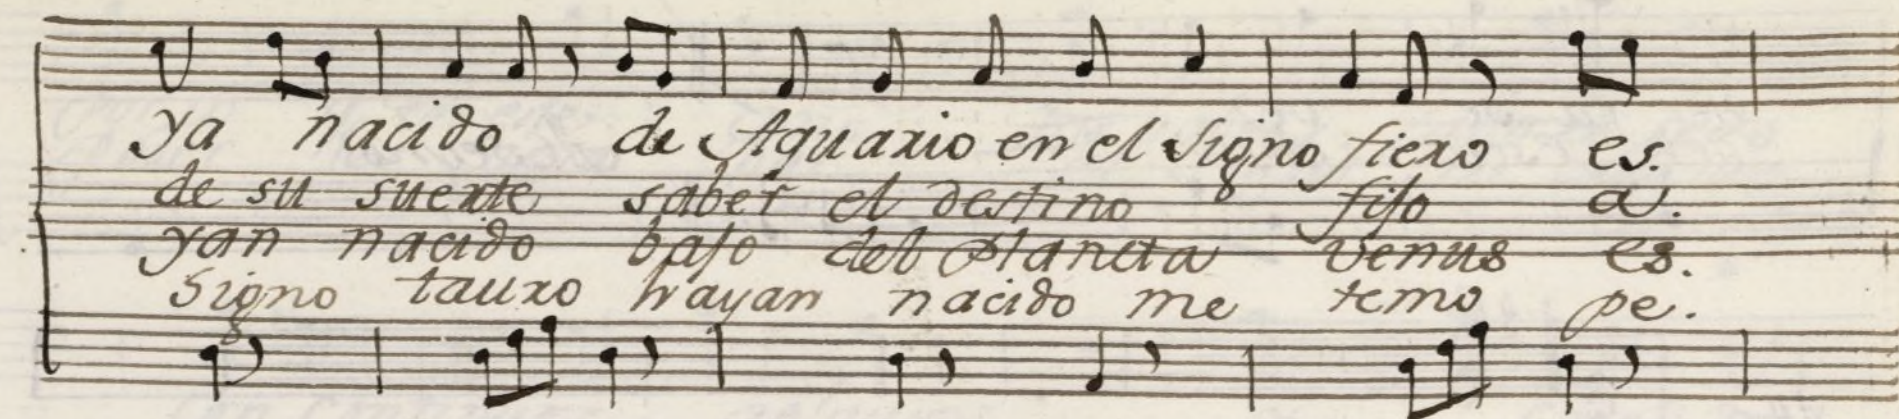 ya nacido de Aquario en el signo fiero es.
de su suerte saber el destino fijo a.
yan nacido bajo del planeta venus es.
Signo tauro hayan nacido me temo pe.